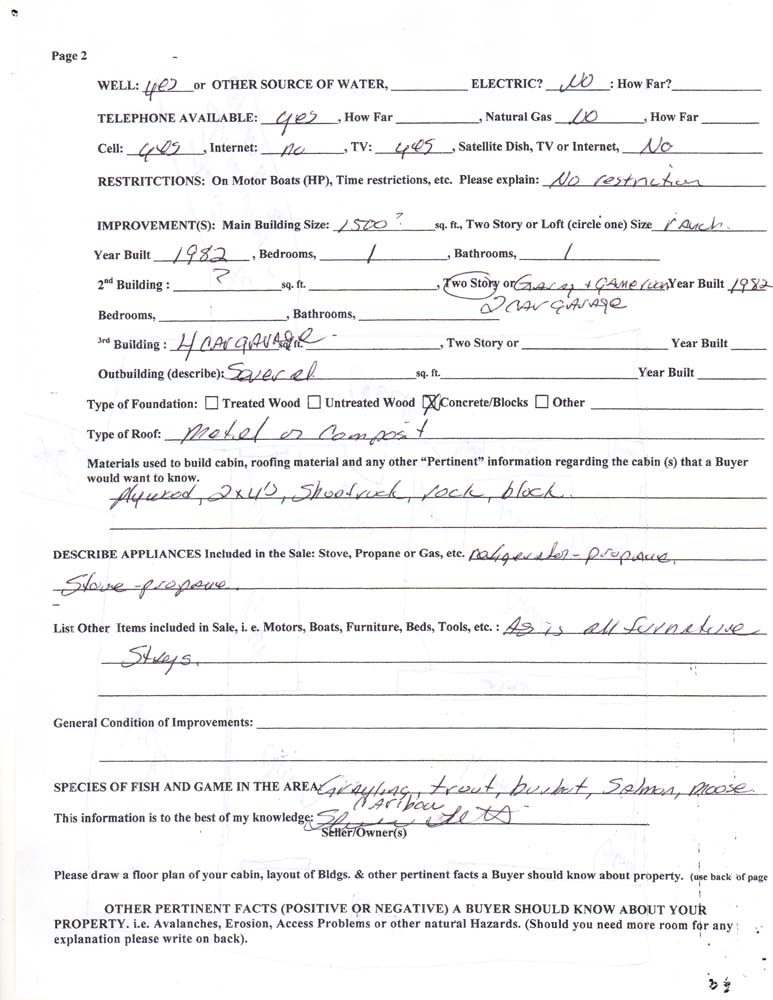 Page 2
WELL: yes or OTHER SOURCE OF WATER, ____________ ELECTRIC? No : How Far? ____________
TELEPHONE AVAILABLE: yes , How Far ____________ , Natural Gas NO , How Far ________
Cell: yes , Internet: no , TV: yes , Satellite Dish, TV or Internet, No
RESTRITCTIONS: On Motor Boats (HP), Time restrictions, etc. Please explain: No restriction
IMPROVEMENT(S): Main Building Size: 1500 ? sq. ft., Two Story or Loft (circle one) Size ranch.
Year Built 1982 , Bedrooms, 1 , Bathrooms, 1
2nd Building : ? sq. ft. ____________ , Two Story or Year Built 1982
Bedrooms, ____________ , Bathrooms, ____________ 2 CAR GARAGE
3rd Building : 4 CAR GARAGE sq. ft. ____________ , Two Story or ____________ Year Built ____
Outbuilding (describe): Several sq. ft. ____________ Year Built ________
Type of Foundation: ☐ Treated Wood ☐ Untreated Wood ☒ Concrete/Blocks ☐ Other ____________
Type of Roof: Metel or Composit
Materials used to build cabin, roofing material and any other “Pertinent” information regarding the cabin (s) that a Buyer
would want to know.
plywood, 2x4's, Sheetrock, rock, block.
DESCRIBE APPLIANCES Included in the Sale: Stove, Propane or Gas, etc. refigerator - propane,
Stove - propane.
List Other Items included in Sale, i. e. Motors, Boats, Furniture, Beds, Tools, etc. : As is all furnature
Stays.
General Condition of Improvements: ____________
SPECIES OF FISH AND GAME IN THE AREA Grayling, trout, burbot, Salmon, moose
Caribou
This information is to the best of my knowledge:
Seller/Owner(s)
Please draw a floor plan of your cabin, layout of Bldgs. & other pertinent facts a Buyer should know about property. (use back of page
OTHER PERTINENT FACTS (POSITIVE OR NEGATIVE) A BUYER SHOULD KNOW ABOUT YOUR
PROPERTY. i.e. Avalanches, Erosion, Access Problems or other natural Hazards. (Should you need more room for any
explanation please write on back).